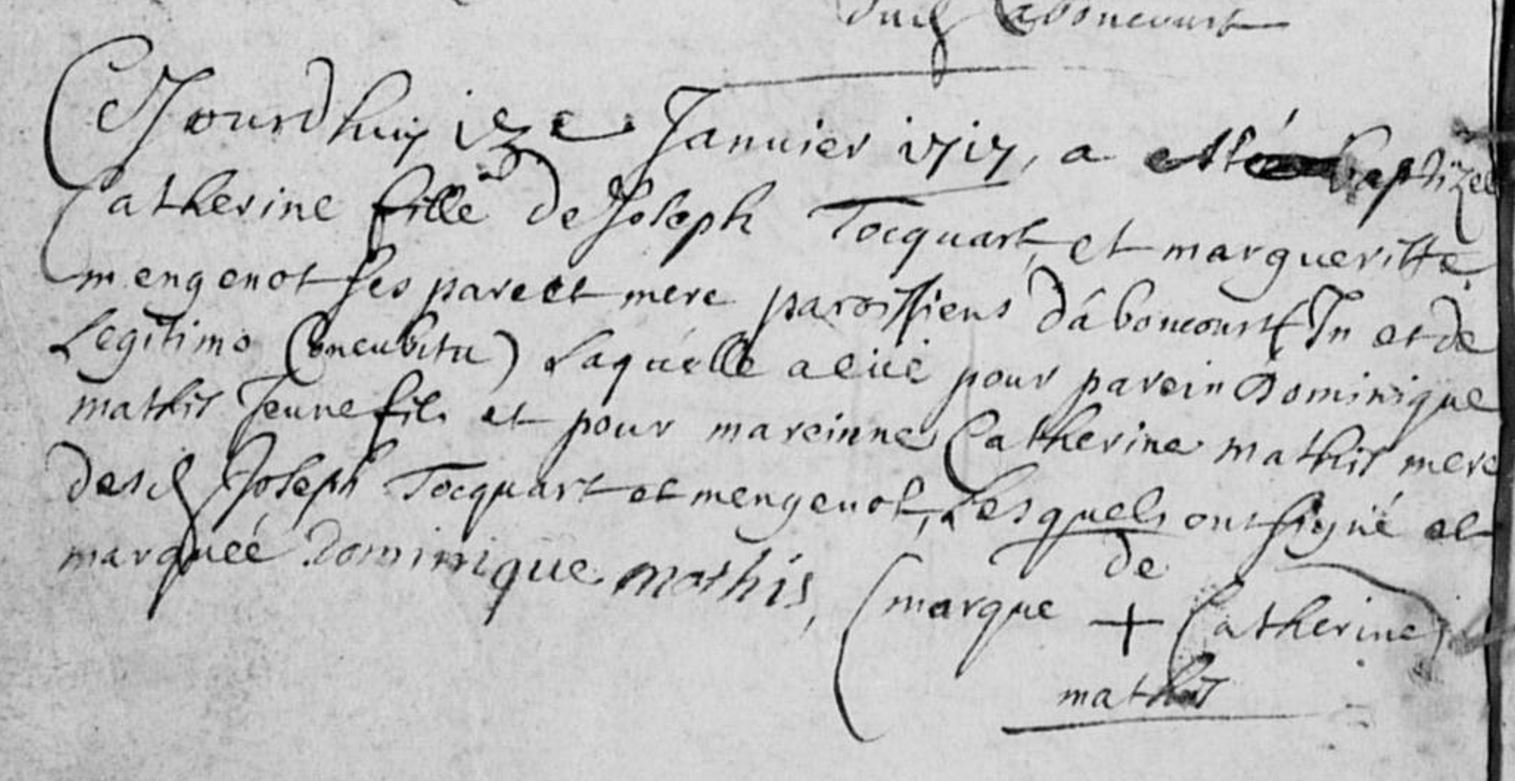 dud Aboncourt
Cejourdhuy 13e Janvier 1717, a esté baptizee
Catherine fille de Joseph Tocquart, et margueritte
mengenot ses pare et mere paroissiens dâboncourt (In et de
Legitimo Concubitu) Laquelle a eue pour parein Dominique
mathis Jeune fils et pour mareinne Catherine mathis mere
desd Joseph Tocquart et mengenot, Lesquels ont signé et
marquéé Dominique mathis,
de
(marque + Catherine)
mathis